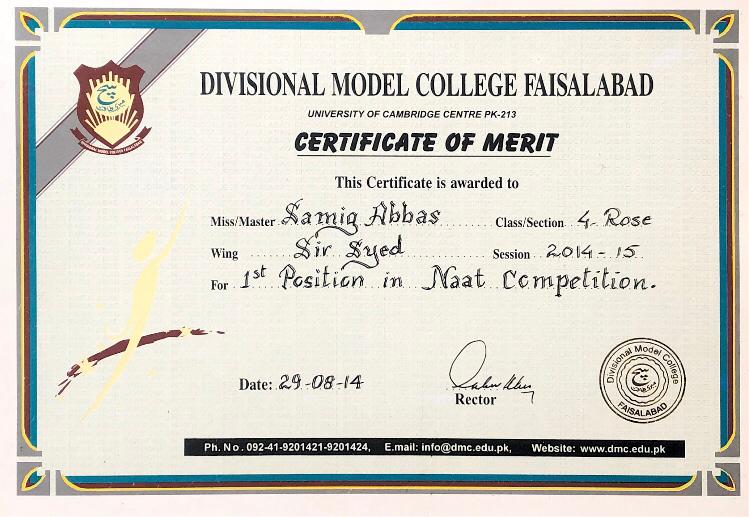 DIVISIONAL MODEL COLLEGE FAISALABAD
UNIVERSITY OF CAMBRIDGE CENTRE PK-213
CERTIFICATE OF MERIT
This Certificate is awarded to
Miss/Master Samiq Abbas Class/Section 4-Rose
Wing Sir Syed Session 2014-15
For 1st Position in Naat Competition.
Date: 29-08-14
Rector
Divisional Model College
سچ
FAISALABAD
Ph. No. 092-41-9201421-9201424, E.mail: info@dmc.edu.pk, Website: www.dmc.edu.pk
سچ
DIVISIONAL MODEL COLLEGE FAISALABAD